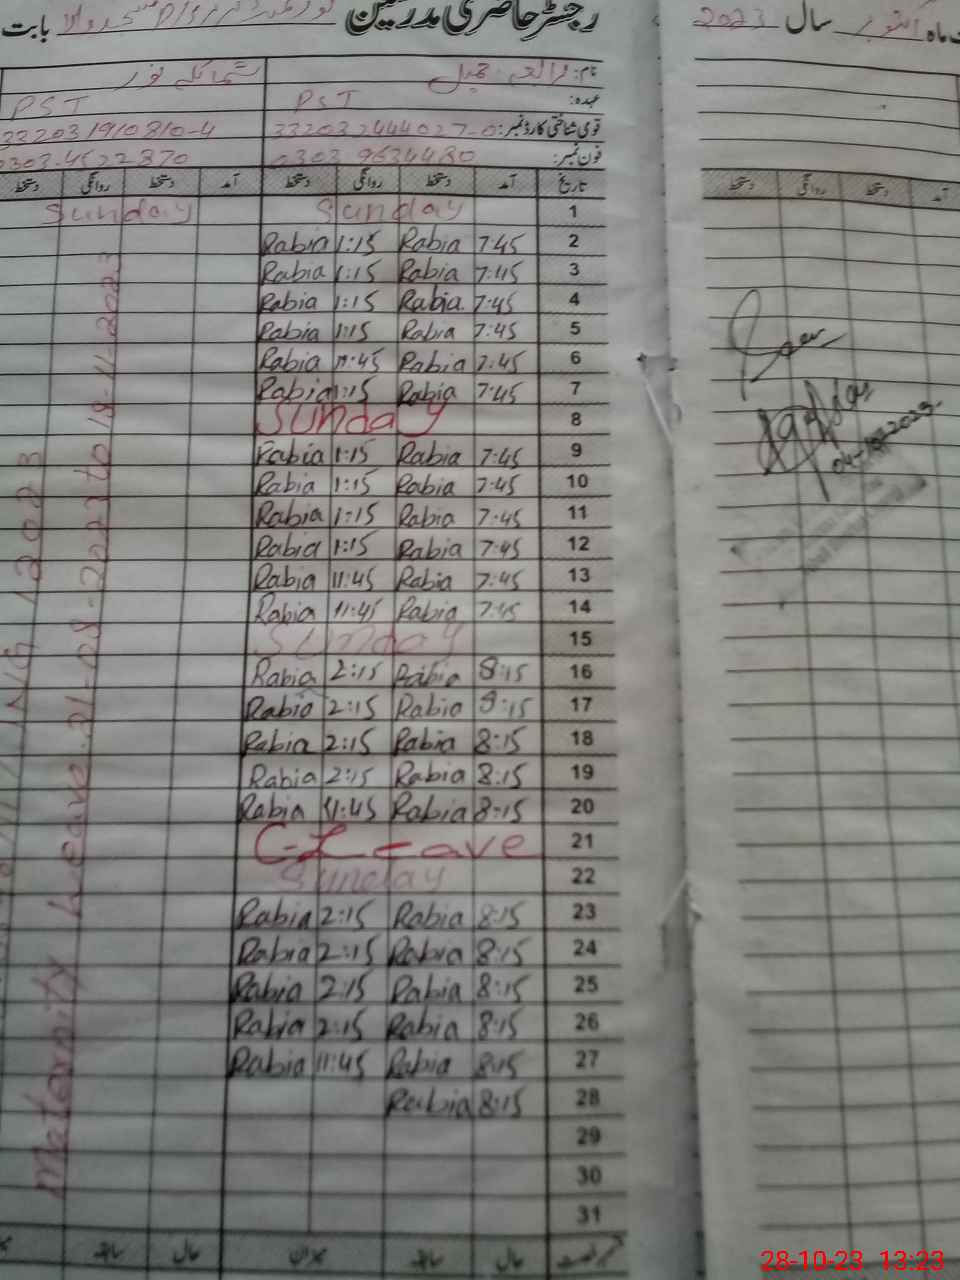 رجسٹر حاضری مدرسین بابت
ماہ اکتوبر سال 2023
نام: رابعہ جمیل شمائلہ نور
عہدہ: PST PST
قومی شناختی کارڈ نمبر: 332032444027-0 332031910810-4
فون نمبر: 0303 9634480 0303-4522870
تاریخ آمد دستخط روانگی دستخط آمد دستخط روانگی دستخط
آمد دستخط روانگی دستخط
1 Sunday Sunday
2 7:45 Rabia 1:15 Rabia
3 7:45 Rabia 1:15 Rabia
4 7:45 Rabia 1:15 Rabia
5 7:45 Rabia 1:15 Rabia
6 7:45 Rabia 11:45 Rabia
7 7:45 Rabia 1:15 Rabia
8 Sunday
9 7:45 Rabia 1:15 Rabia
10 7:45 Rabia 1:15 Rabia
11 7:45 Rabia 1:15 Rabia
12 7:45 Rabia 1:15 Rabia
13 7:45 Rabia 11:45 Rabia
14 7:45 Rabia 11:45 Rabia
15 Sunday
16 8:15 Rabia 2:15 Rabia
17 8:15 Rabia 2:15 Rabia
18 8:15 Rabia 2:15 Rabia
19 8:15 Rabia 2:15 Rabia
20 8:15 Rabia 11:45 Rabia
21 C-Leave
22 Sunday
23 8:15 Rabia 2:15 Rabia
24 8:15 Rabia 2:15 Rabia
25 8:15 Rabia 2:15 Rabia
26 8:15 Rabia 2:15 Rabia
27 8:15 Rabia 11:45 Rabia
28 8:15 Rabia
29
30
31
حال سابقہ میزان حال سابقہ
Maternity Leave 21-08-2023 to 18-11-2023
04-10-2023
28-10-23 13:23